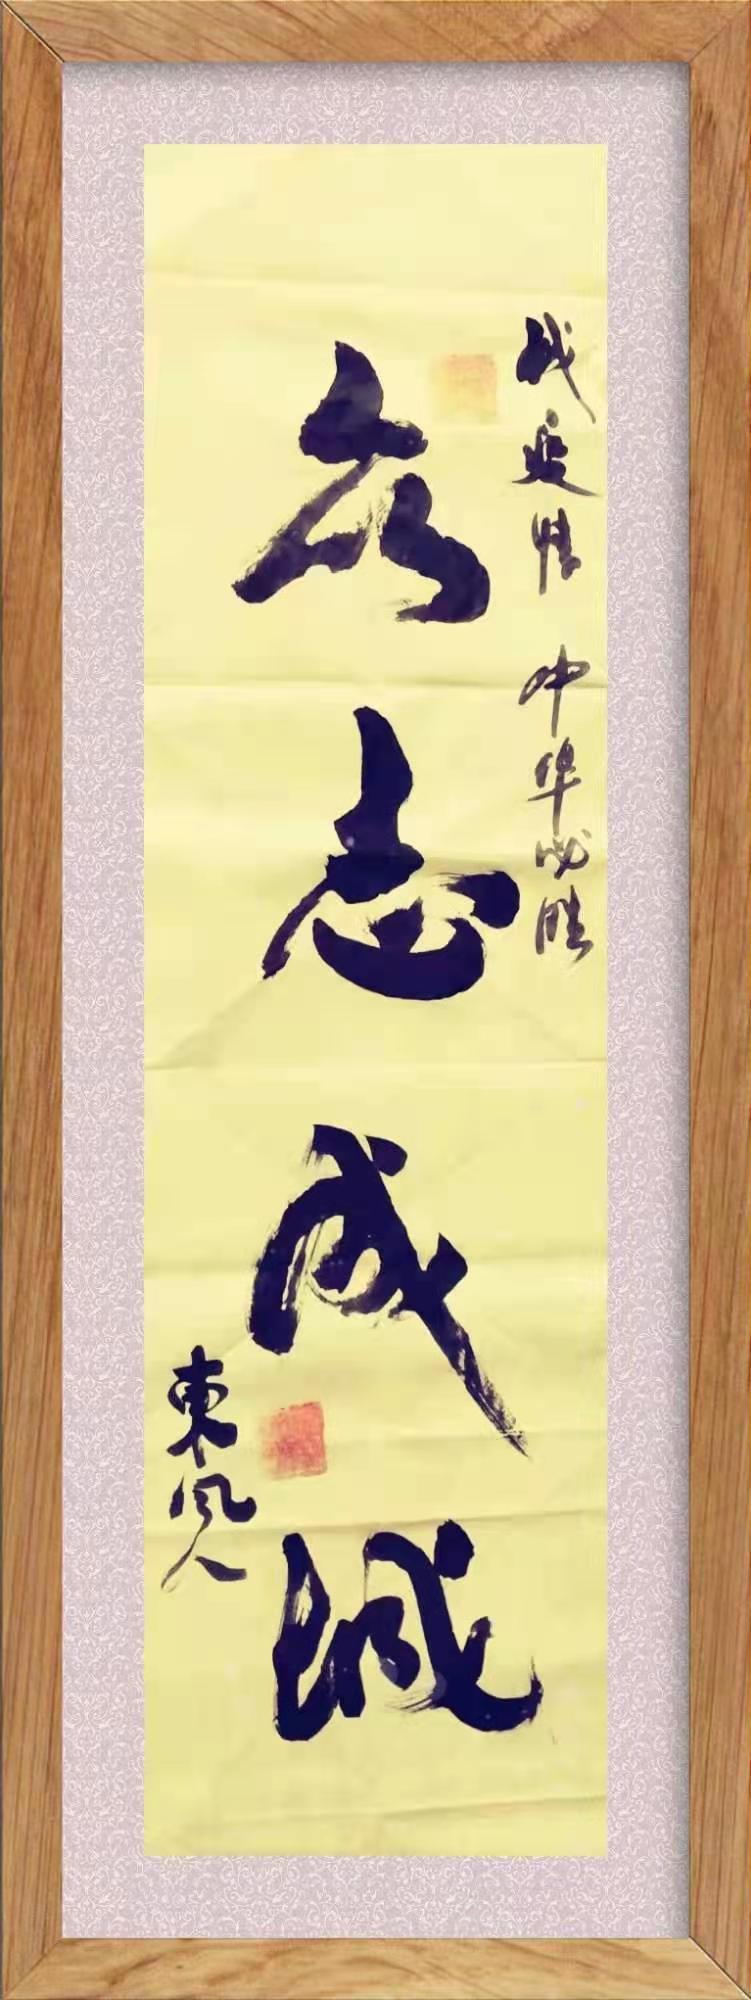 战疫情 中华必胜
众志成城
東风人